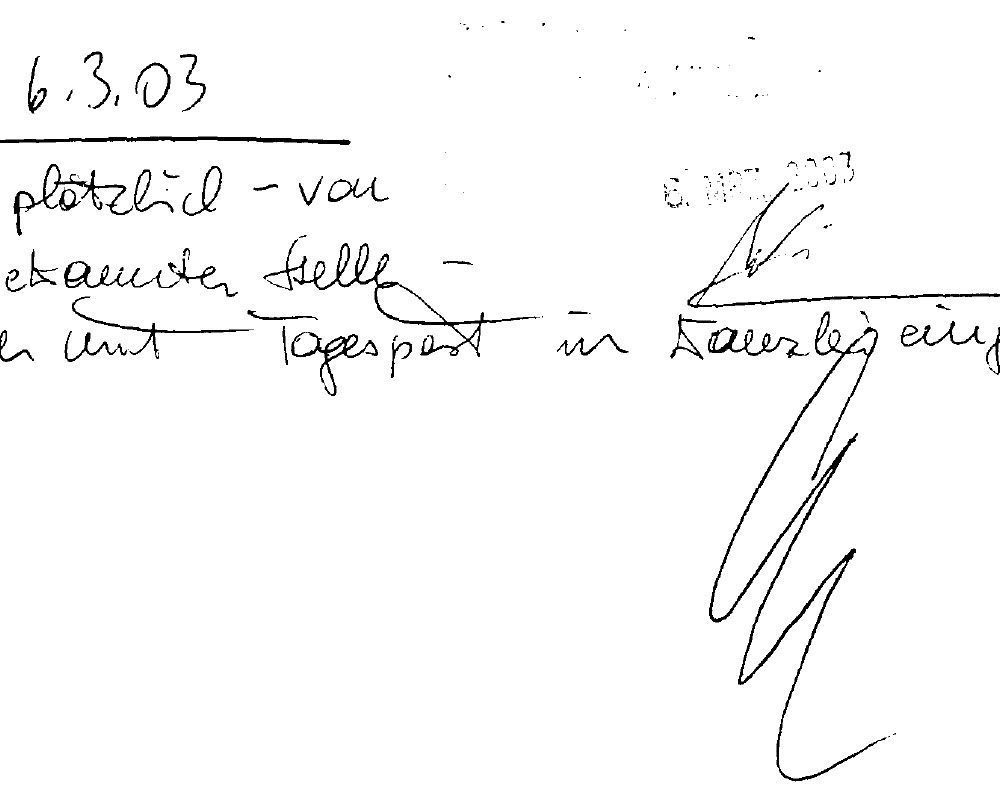 6.3.03
plötzlich - von
ekannter Stelle -
6. MRZ. 2003
en mit Tagespost in Kanzlei eing